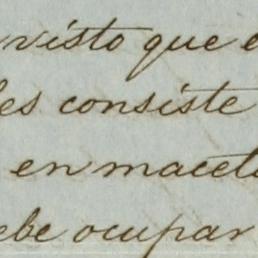 visto que e
les consiste
en maceta
ebe ocupar